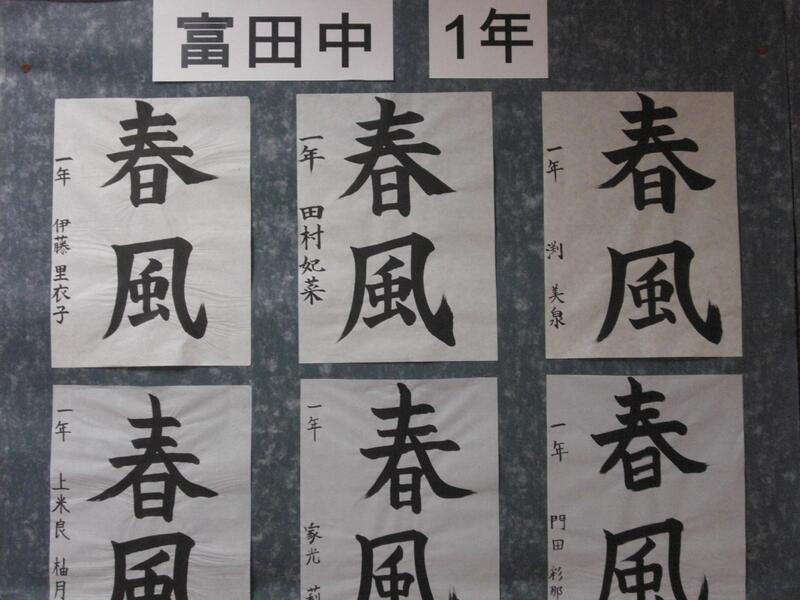 富田中
1年
春風
一年 伊藤里衣子
春風
一年 田村妃菜
春風
一年 渕 美泉
春風
一年 上米良 柚月
春風
一年 家光 莉
春風
一年 門田 彩那